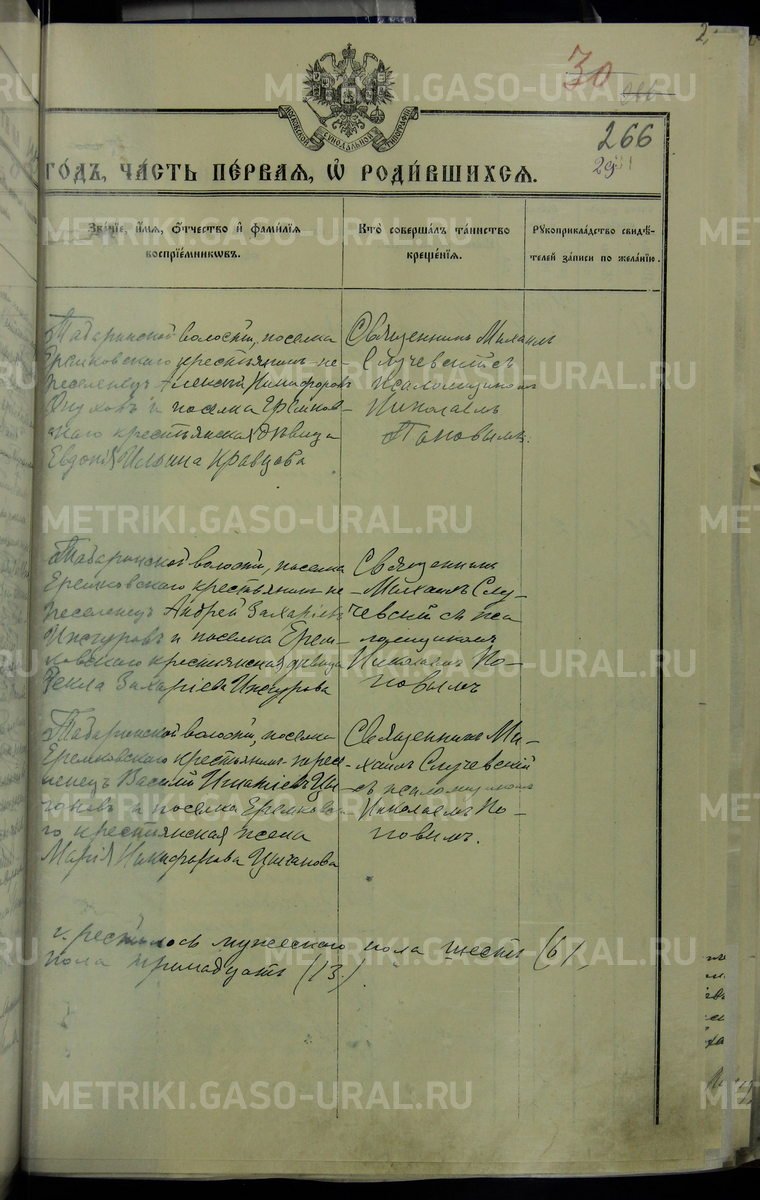 2
30
266
266
291
МОСКОВСКОЙ СѴНОДАЛЬНОЙ ТИПОГРАФІИ
ГО́ДЪ, ЧА́СТЬ ПЕ́РВАЯ, Ѡ҆ РОДИ́ВШИХСЯ.
Зва́нїе, и҆́мя, ѻ҆́тчество и҆ фами́лїя
воспрїе́мникѡвъ.
Кто̀ соверша́лъ та́инство
креще́нїя.
Рꙋкоприкла́дство свидѣ́-
телей за́писи по жела́нїю.
Таборинской волости, поселка
Еремковскаго крестьянинъ пе-
реселенецъ Алексѣй Никифоровъ
и поселка Еремков-
скаго крестьянская дѣвица
Евдокія Ильина Кравцова
Священникъ Михаилъ
Случевскій съ
псаломщикомъ
Николаемъ
Поповымъ.
Таборинской волости, поселка
Еремковскаго крестьянинъ пе-
реселенецъ Андрей Захаріевъ
и поселка Ерем-
ковскаго крестьянская дѣвица
Текла Захаріева
Священникъ
Михаилъ Слу-
чевскій съ пса
ломщикомъ
Николаемъ По-
повымъ
Таборинской волости, поселка
Еремковскаго крестьянинъ пересе-
ленецъ Василій Игнатіевъ Цы-
гановъ и поселка Еремковска-
го крестьянская жена
Марія Никифорова Цыганова
Священникъ Ми-
хаилъ Случевскій
съ псаломщикомъ
Николаемъ По-
повымъ.
крестилось мужескаго пола шесть (6),
пола тринадцать (13).
METRIKI.GASO-URAL.RU